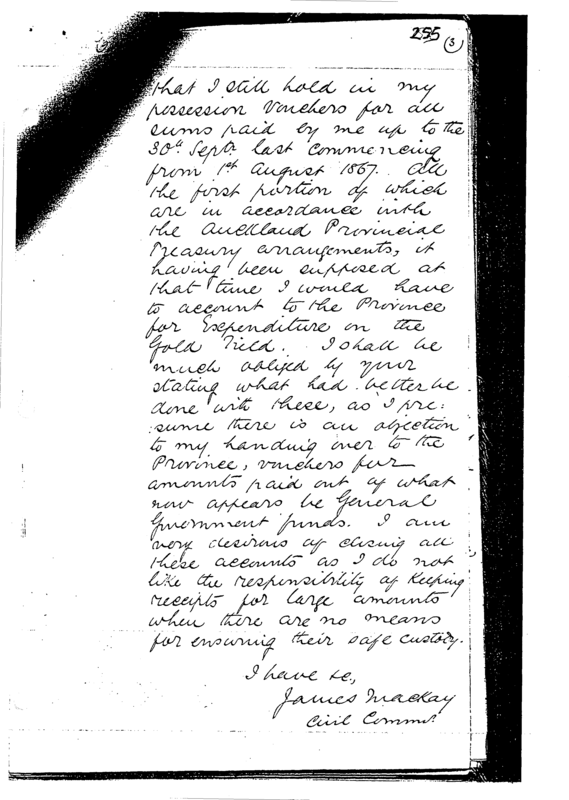 255 (3)
that I still hold in my
possession vouchers for all
sums paid by me up to the
30th Septr last commencing
from 1st August 1867. All
the first portion of which
are in accordance with
the Auckland Provincial
Treasury arrangements, it
having been supposed at
that time I would have
to account to the Province
for Expenditure on the
Gold Field. I shall be
much obliged by your
stating what had better be
done with these, as I pre:
:sume there is an objection
to my handing over to the
Province, vouchers for
amounts paid out of what
now appears be General
Government funds. I am
very desirous of closing all
these accounts as I do not
like the responsibility of keeping
receipts for large amounts
when there are no means
for ensuring their safe custody.
I have &c,
James Mackay
Civil Commr